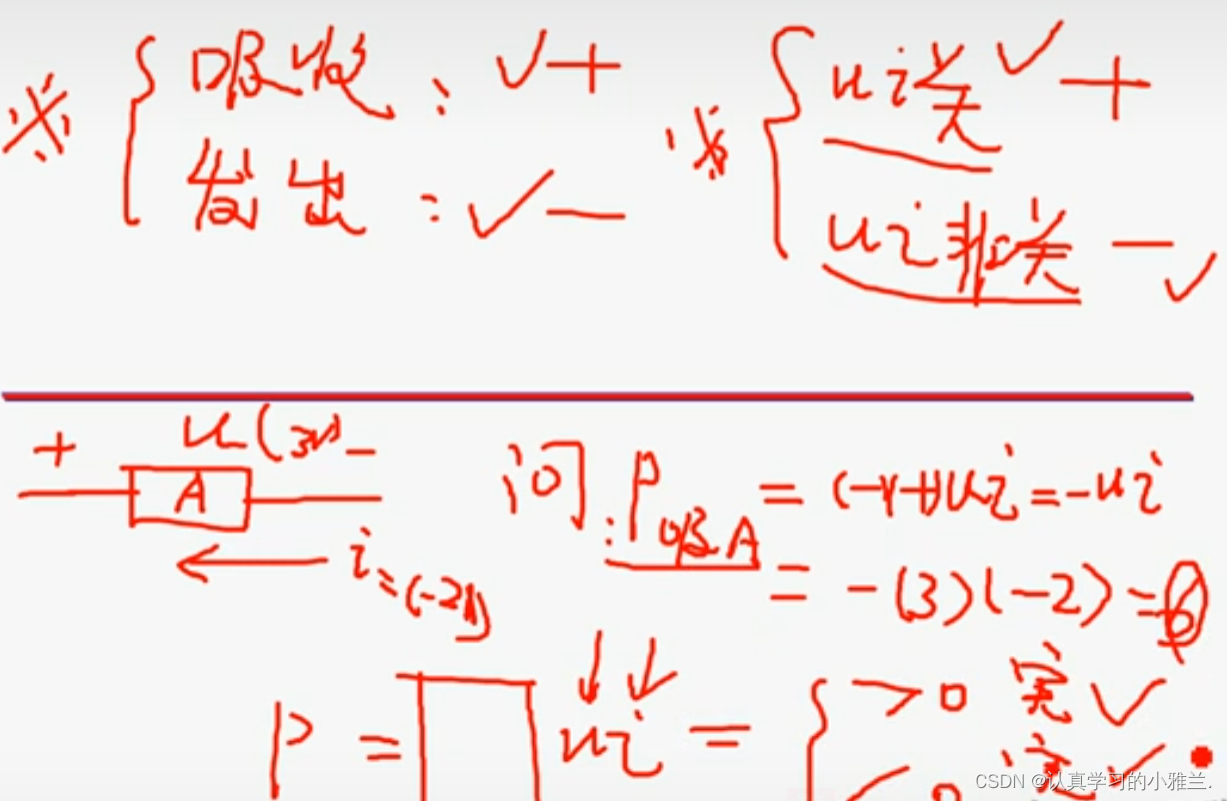 ※ { 吸收：✓ +
发出：✓ —
※ { u i 关 ✓ — +
u i 非关 — ✓
+ u (3V) -
A
i = (-2A)
问：P吸A = (-)(+)ui = -ui
= -(3)(-2) = 6
P = □ ui = { >0 实 ✓
<0 实 ✓
CSDN @认真学习的小雅兰.